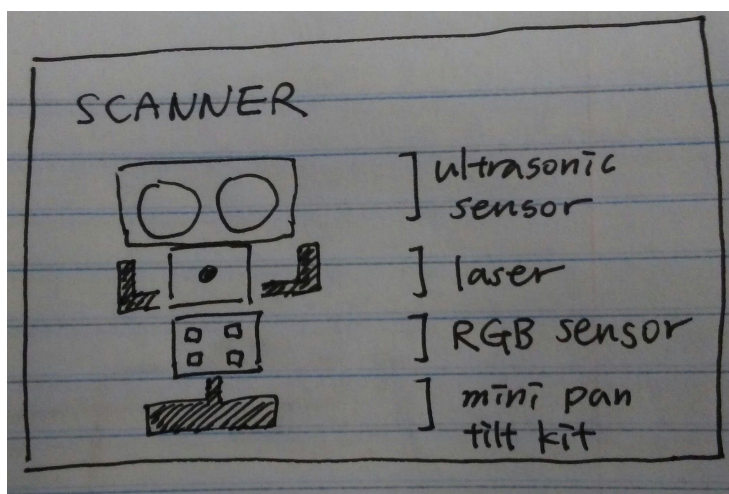 SCANNER
ultrasonic
sensor
laser
RGB sensor
mini pan
tilt kit